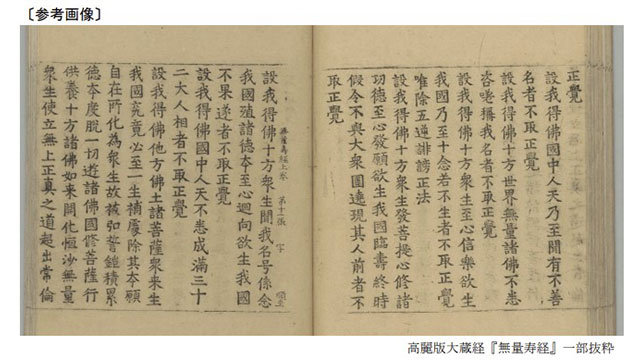 〔参考画像〕
正覺
設我得佛國中人天乃至聞有不善
名者不取正覺
設我得佛十方世界無量諸佛不悉
咨嗟稱我名者不取正覺
設我得佛十方衆生至心信樂欲生
我國乃至十念若不生者不取正覺
唯除五逆誹謗正法
設我得佛十方衆生發菩提心修諸
功德至心發願欲生我國臨壽終時
假令不與大衆圍遶現其人前者不
取正覺
無量壽經上卷 下
設我得佛十方衆生聞我名号係念
我國殖諸德本至心迴向欲生我國
不果遂者不取正覺
設我得佛國中人天不悉成滿三十
二大人相者不取正覺
設我得佛他方佛土諸菩薩衆來生
我國究竟必至一生補處除其本願
自在所化爲衆生故被弘誓鎧積累
德本度脫一切遊諸佛國修菩薩行
供養十方諸佛如來開化恒沙無量
衆生使立無上正真之道超出常倫
高麗版大蔵経『無量寿経』一部抜粋